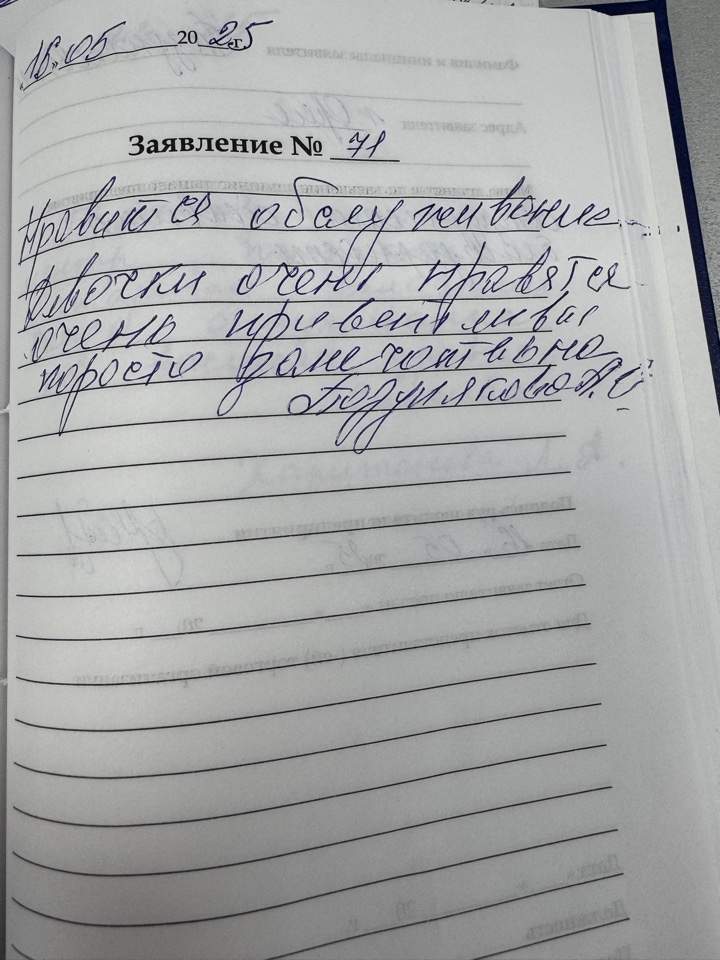 «16» 05 2025 г.
Заявление № 71
Нравится обслуживание
Девочки очень нравятся
очень приветливы
поросто замечательно